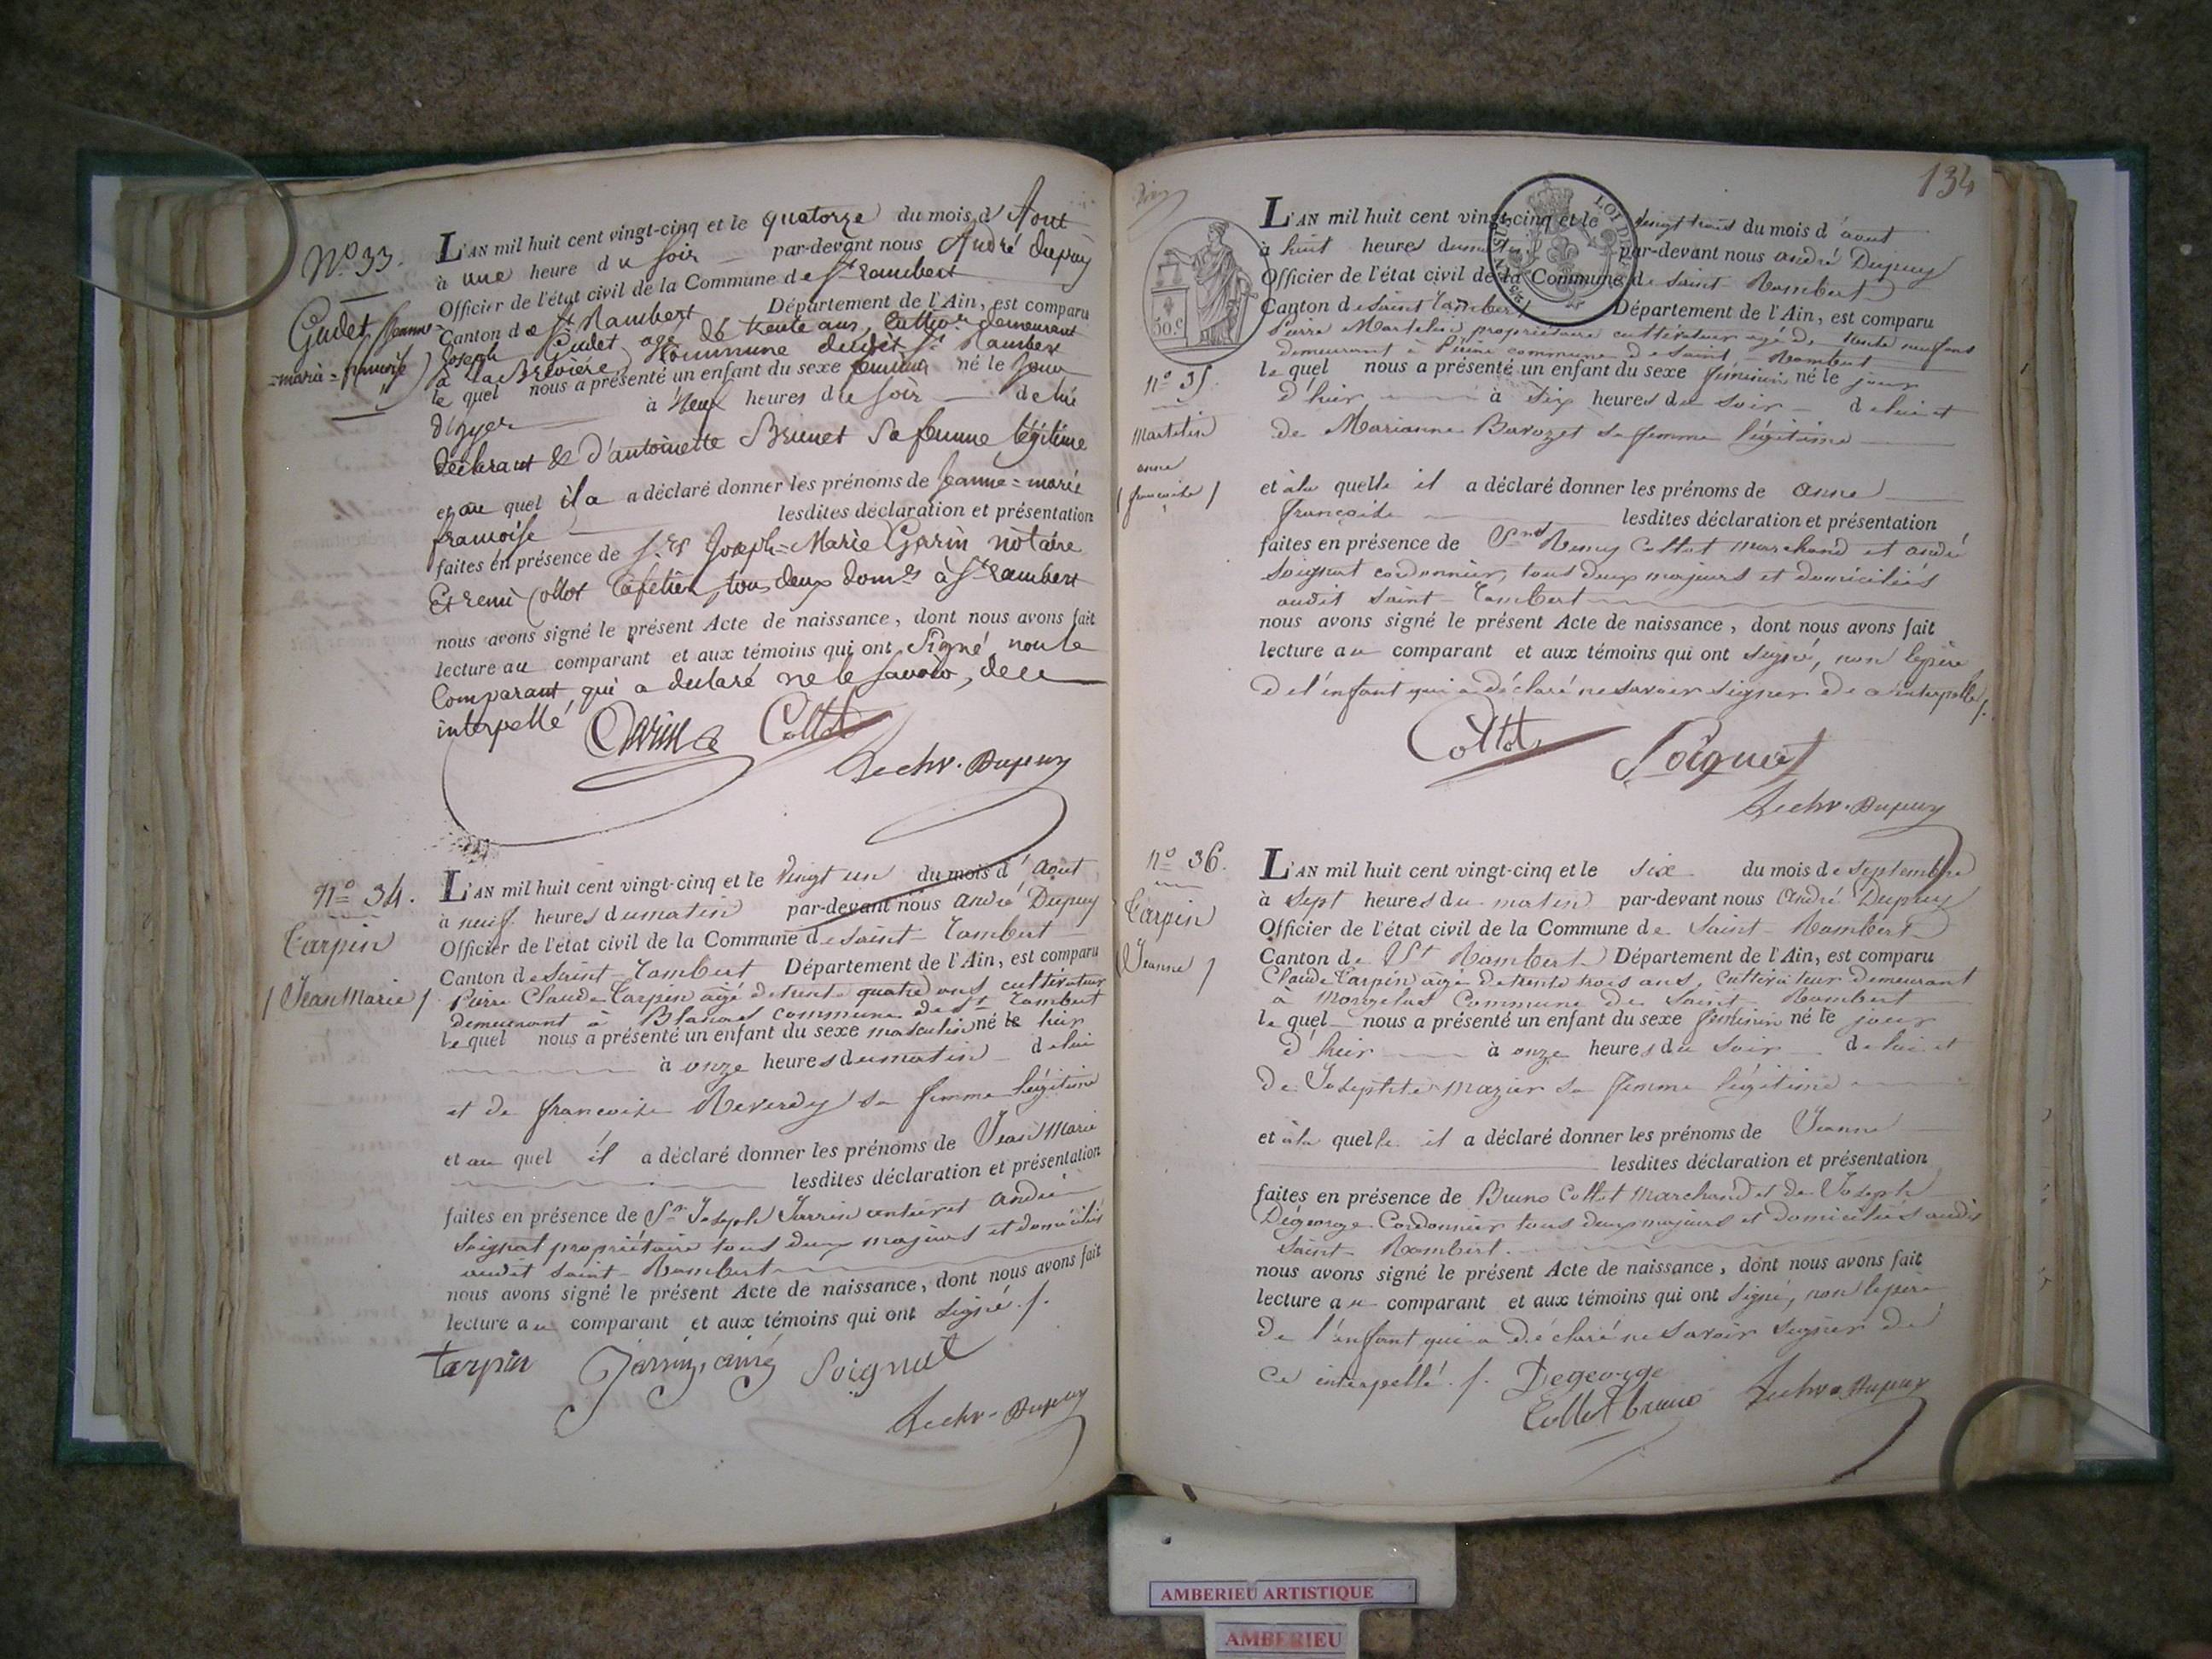 N.o 33.
Gudet Jeanne=
=marie=francoise
L'AN mil huit cent vingt-cinq et le quatorze du mois d'Aout
à une heure du soir par-devant nous André dupuy
Officier de l'état civil de la Commune de St rambert
Canton de St Rambert Département de l'Ain, est comparu
Joseph Gudet agé de trente ans, demeurant
à la Brevière Commune dudit St Rambert
le quel nous a présenté un enfant du sexe feminin né le jour
d'hyer à Neuf heures du soir de lui
déclarant & d'antoinette Brunet Sa femme légitime
et au quel il a a déclaré donner les prénoms de Jeanne=marie
francoise lesdites déclaration et présentation
faites en présence de s.rs Joseph=Marie Garin notaire
Et remi Collot Cafetier, tous deux dom.és à St rambert
nous avons signé le présent Acte de naissance, dont nous avons fait
lecture au comparant et aux témoins qui ont Signé non le
Comparant qui a declaré ne le savoir, de ce
interpellé Garin Collot
Dupuy
n.o 34.
Tarpin
/ Jean Marie /
L'AN mil huit cent vingt-cinq et le vingt un du mois d'aout
à neuf heures du matin par-devant nous André Dupuy
Officier de l'état civil de la Commune de Saint-Rambert
Canton de Saint-Rambert Département de l'Ain, est comparu
Pierre Claude Tarpin agé de trente quatre ans cultivateur
demeurant à Blanas commune de St Rambert
le quel nous a présenté un enfant du sexe masculin né le hier
à onze heures du matin de lui
et de francoise Reverdy sa femme légitime
et au quel il a déclaré donner les prénoms de Jean Marie
lesdites déclaration et présentation
faites en présence de Sr Joseph Jarrin rentier et André
Soignat propriétaire tous deux majeurs et domiciliés
audit Saint-Rambert
nous avons signé le présent Acte de naissance, dont nous avons fait
lecture au comparant et aux témoins qui ont signé./.
tarpin Jarrin ainé Soignat
Dupuy
134
LOI DE
50.c
n.o 35.
Martelin
anne
/ francoise /
L'AN mil huit cent vingt-cinq et le vingt trois du mois d'aout
à huit heures du matin par-devant nous André Dupuy
Officier de l'état civil de la Commune de Saint Rambert
Canton de Saint Rambert Département de l'Ain, est comparu
Pierre Martelin propriétaire cultivateur agé de trente neuf ans
demeurant à commune de Saint-Rambert
le quel nous a présenté un enfant du sexe féminin né le jour
d'hier à Six heures du soir de lui et
de Marianne Bavozet sa femme légitime
et à la quelle il a déclaré donner les prénoms de anne
francoise lesdites déclaration et présentation
faites en présence de Remy Collot marchand et andré
Soignat cordonnier, tous deux majeurs et domiciliés
audit Saint-Rambert
nous avons signé le présent Acte de naissance, dont nous avons fait
lecture au comparant et aux témoins qui ont signé, non le père
de l'enfant qui a déclaré ne savoir signer de ce interpellé /.
Collot Soignat
Dupuy
n.o 36.
Tarpin
/ Jeanne /
L'AN mil huit cent vingt-cinq et le six du mois de septembre
à sept heures du matin par-devant nous André Dupuy
Officier de l'état civil de la Commune de Saint-Rambert
Canton de St Rambert Département de l'Ain, est comparu
Claude Tarpin agé de trente trois ans, cultivateur demeurant
à Mongelas Commune de Saint Rambert
le quel nous a présenté un enfant du sexe féminin né le jour
d'hier à onze heures du soir de lui et
de Josephte mazuir sa femme légitime
et à la quelle il a déclaré donner les prénoms de Jeanne
lesdites déclaration et présentation
faites en présence de Bruno Collot marchand et de Joseph
Dégeorge Cordonnier tous deux majeurs et domiciliés audit
Saint-Rambert.
nous avons signé le présent Acte de naissance, dont nous avons fait
lecture au comparant et aux témoins qui ont signé, non le père
de l'enfant qui a déclaré ne savoir signer de
ce interpellé./. Degeorge
Collot bruno Dupuy
AMBERIEU ARTISTIQUE
AMBERIEU